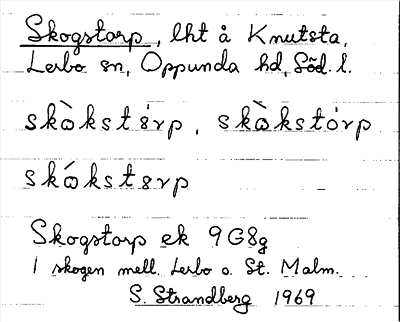 Skogstorp, lht å Knutsta,
Lerbo sn, Oppunda hd, Söd. l.
skὼkstɵ̀rp, skὼkstȯrp
skɷ́kstɵrp
Skogstorp ek 9G8g
I skogen mell. Lerbo o. St. Malm.
S. Strandberg 1969